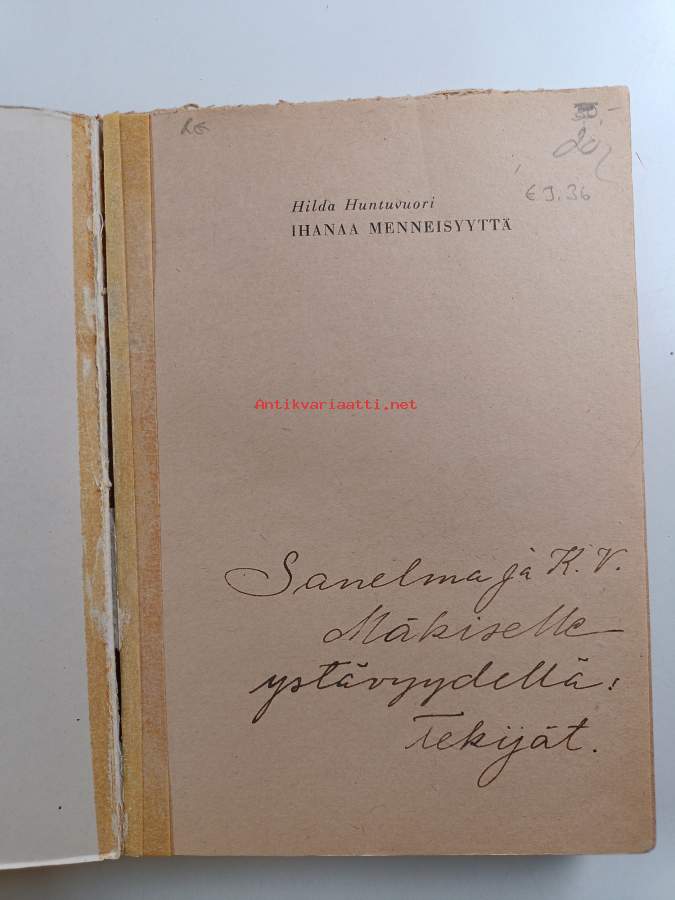 30,-
20,
€ 3.36
Hilda Huntuvuori
IHANAA MENNEISYYTTÄ
Antikvariaatti.net
Sanelma ja K. V.
Mäkiselle
ystävyydellä:
Tekijät.